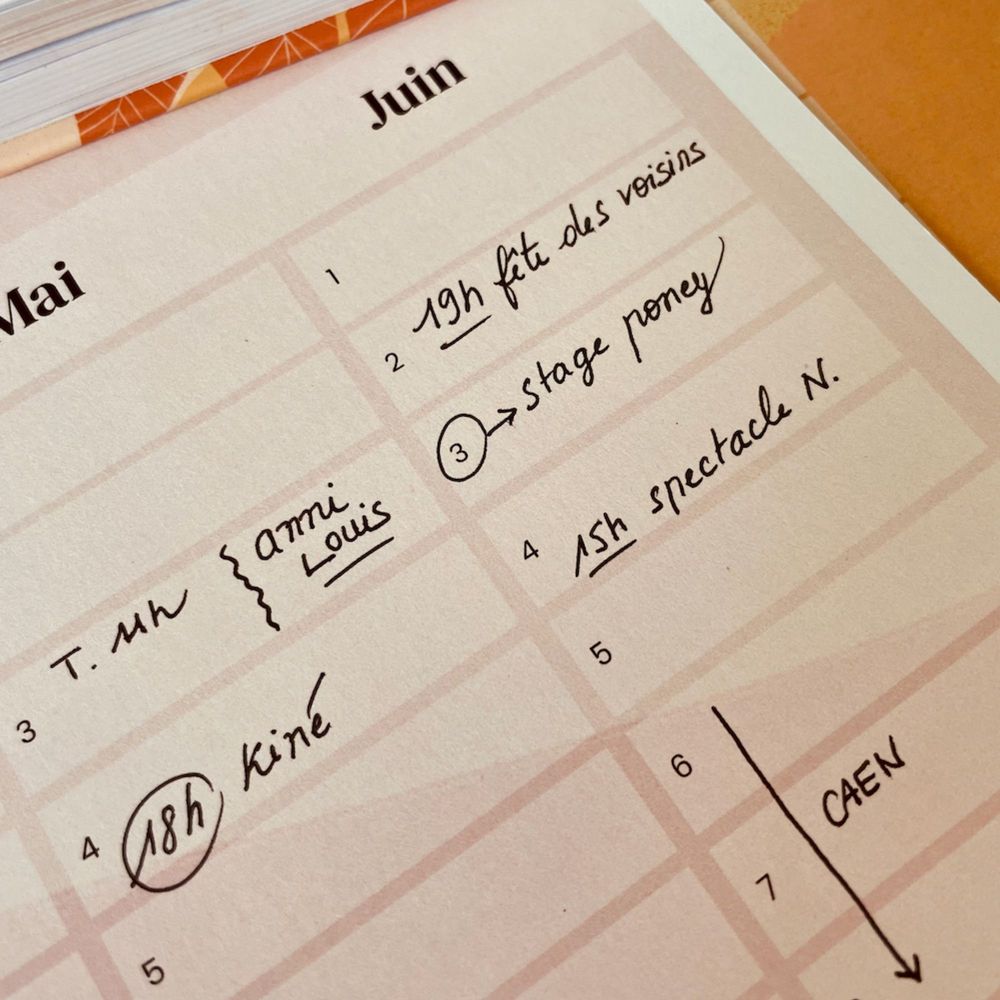 Mai
T. 11h { anni
Louis
3
4 18h Kiné
5
Juin
1
2 19h fête des voisins
3 → stage poney
4 15h spectacle N.
5
6
CAEN
7